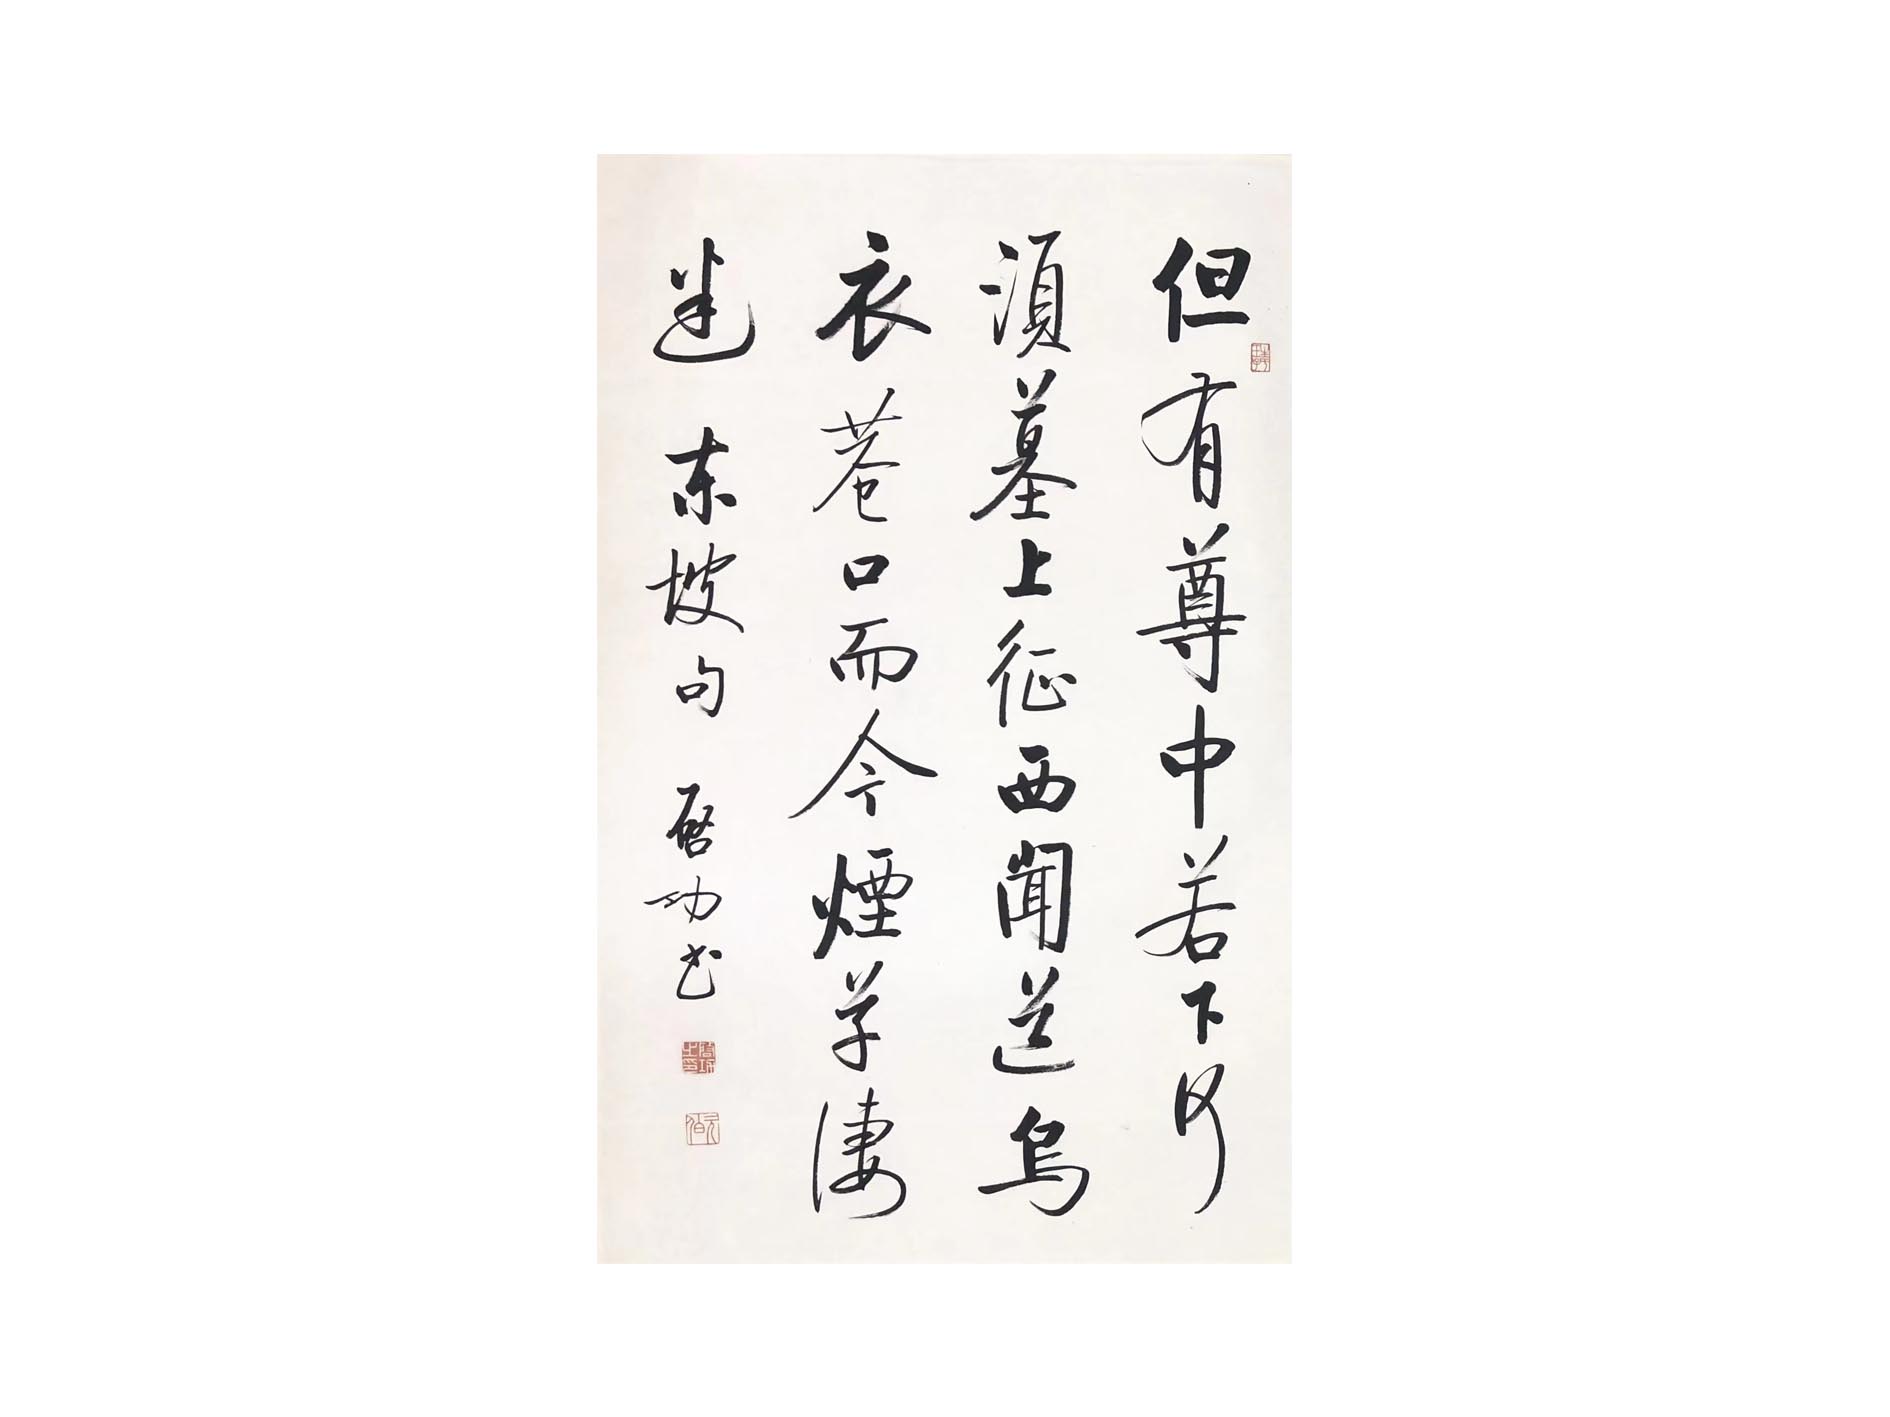 但有尊中若下何
須墓上征西聞道烏
衣巷口而今煙草淒
迷 東坡句 啟功書